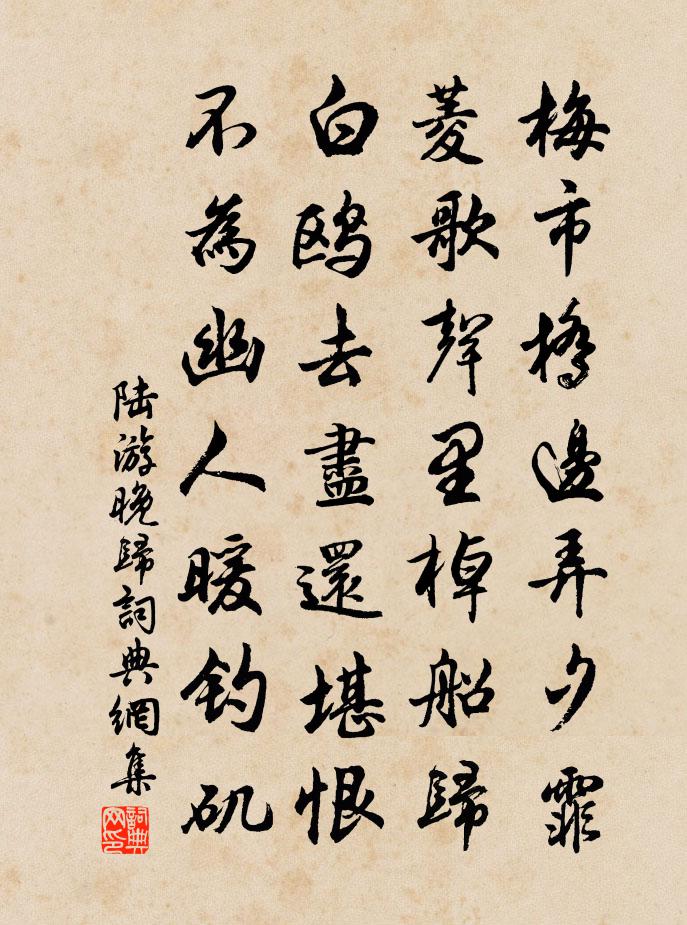 梅市橋邊弄夕霏
菱歌聲里棹船歸
白鸥去盡還堪恨
不為幽人暖钓矶
陆游晚歸詞典網集
詞典网印